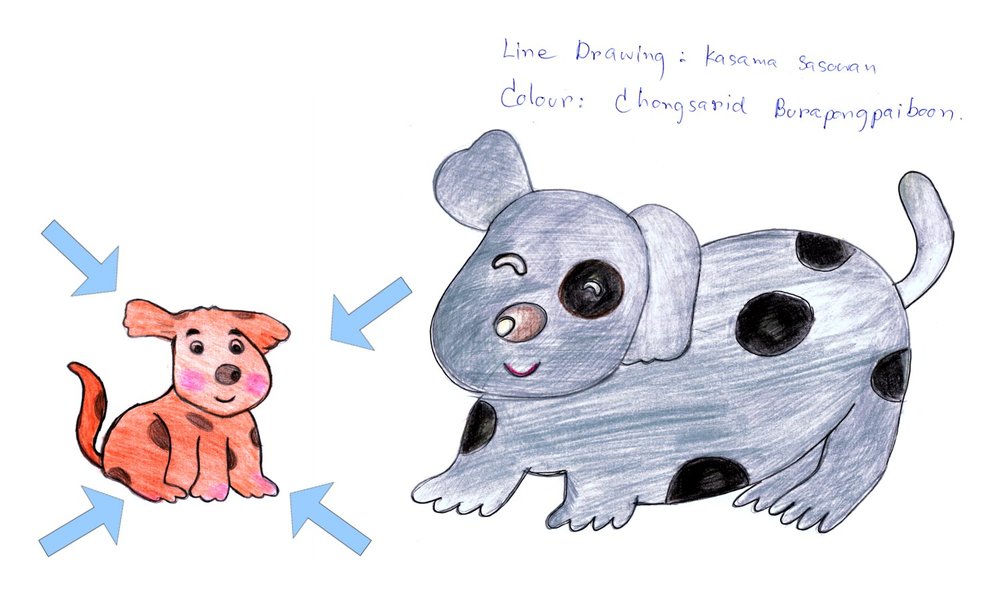 Line Drawing : Kasama Sasowan
Colour: Chongsarid Burapongpaiboon.